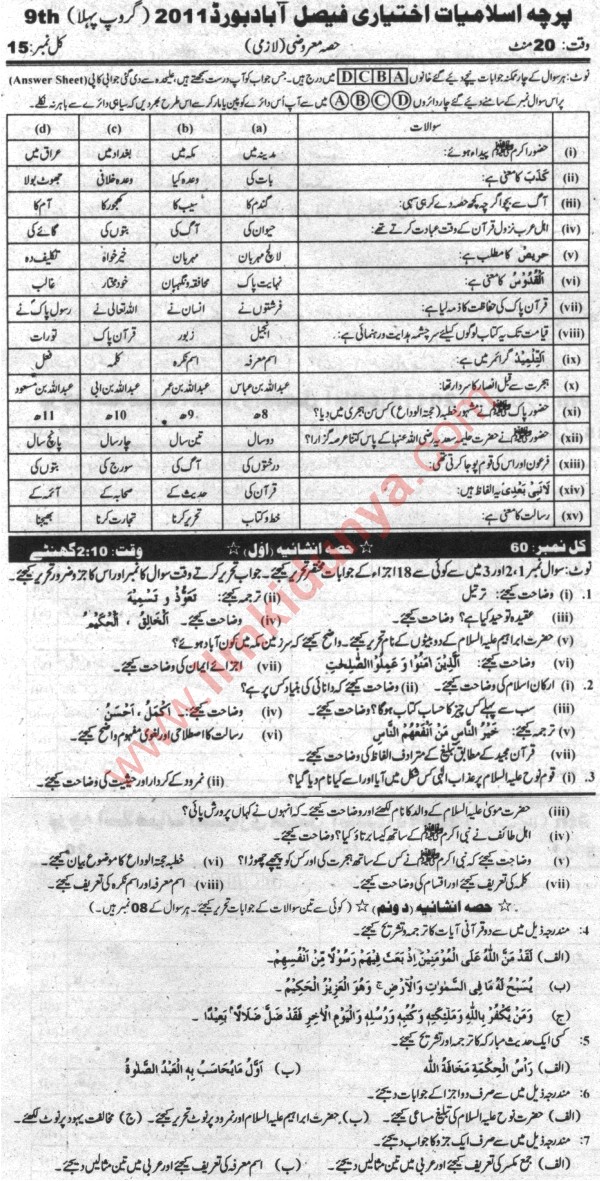 پرچہ اسلامیات اختیاری فیصل آباد بورڈ 2011 (گروپ پہلا) 9th
وقت: 20 منٹ حصہ معروضی (لازمی) کل نمبر: 15
نوٹ: ہر سوال کے چار ممکنہ جوابات نیچے دیے گئے خانوں D C B A میں درج ہیں۔ جس جواب کو آپ درست سمجھتے ہیں، علیحدہ سے دی گئی جوابی کاپی (Answer Sheet)
پر اس سوال نمبر کے سامنے دیے گئے چار دائروں A B C D میں سے آپ اُس دائرے کو پین یا مارکر سے اس طرح بھر دیں کہ سیاہی دائرے سے باہر نہ نکلے۔
سوالات (a) (b) (c) (d)
(i) حضور اکرم ﷺ پیدا ہوئے: مدینہ میں مکہ میں بغداد میں عراق میں
(ii) کَذَبَ کا معنی ہے: بات کی وعدہ کیا وعدہ خلافی جھوٹ بولا
(iii) آگ سے بچو اگرچہ کچھ حصہ دے کر ہی سہی: گندم کا سیب کا کھجور کا آم کا
(iv) اہل عرب نزول قرآن کے وقت عبادت کرتے تھے: حیوان کی آگ کی بتوں کی گائے کی
(v) حریص کا مطلب ہے: لالچ مہربان مہربان خیر خواہ تکلیف دہ
(vi) اَلْقُدُّوْسُ کا معنی ہے: نہایت پاک محافظ و نگہبان خود مختار غالب
(vii) قرآن پاک کی حفاظت کا ذمہ لیا ہے: فرشتوں نے انسان نے اللہ تعالیٰ نے رسول پاک نے
(viii) قیامت تک یہ کتاب لوگوں کیلئے سرچشمہ ہدایت و رہنمائی ہے: انجیل زبور قرآن پاک تورات
(ix) اَلتِّلْمِیْذُ گرائمر میں ہے: اسم معرفہ اسم نکرہ کلمہ فعل
(x) ہجرت سے قبل انصار کا سردار تھا: عبداللہ بن عباس عبداللہ بن عمر عبداللہ بن ابی عبداللہ بن مسعود
(xi) حضور پاک ﷺ نے مشہور خطبہ (حجتہ الوداع) کس سن ہجری میں دیا؟ 8ھ 9ھ 10ھ 11ھ
(xii) حضور ﷺ نے حضرت حلیمہ سعدیہ رضی اللہ عنہا کے پاس کتنا عرصہ گزارا؟ دو سال تین سال چار سال پانچ سال
(xiii) فرعون اور اس کی قوم پوجا کرتی تھی: درختوں کی آگ کی سورج کی بتوں کی
(xiv) لَا نَبِیَّ بَعْدِیْ یہ الفاظ ہیں: قرآن کی حدیث کے صحابہ کے آئمہ کے
(xv) رسالت کا معنی ہے: خط و کتاب تحریر کرنا تجارت کرنا بھیجنا
کل نمبر: 60 ☆ حصہ انشائیہ (اول) ☆ وقت: 2:10 گھنٹے
نوٹ: سوال نمبر 1، 2 اور 3 میں سے کوئی سے 18 اجزاء کے جوابات مختصر تحریر کیجئے۔ جواب تحریر کرتے وقت سوال کا نمبر اور اس کا جز ضرور تحریر کیجئے۔
1. (i) وضاحت کیجئے: ترتیل (ii) ترجمہ کیجئے: تعوّذ و تسمیۃ
(iii) عقیدہ توحید کیا ہے؟ وضاحت کیجئے۔ (iv) وضاحت کیجئے۔ اَلْخَالِقُ، اَلْحَکِیْمُ
(v) حضرت ابراہیم علیہ السلام کے دو بیٹوں کے نام تحریر کیجئے۔ واضح کیجئے کہ سرزمین مکہ میں کون آباد ہوئے؟
(vi) وضاحت کیجئے: اَلَّذِیْنَ اٰمَنُوْا وَ عَمِلُوا الصّٰلِحٰتِ (vii) اجزائے ایمان کی وضاحت کیجئے۔
2. (i) ارکان اسلام کی وضاحت کیجئے۔ (ii) وضاحت کیجئے کہ دانائی کی بنیاد کس پر ہے؟
(iii) سب سے پہلے کس چیز کا حساب کتاب ہوگا؟ وضاحت کیجئے۔ (iv) وضاحت کیجئے: اَکْمَلُ، اَحْسَنُ
(v) ترجمہ کیجئے: خَیْرُ النَّاسِ مَنْ اَنْفَعُهُمُ النَّاسِ (vi) رسالت کا اصطلاحی اور لغوی مفہوم واضح کیجئے۔
(vii) قرآن مجید کے مطابق تبلیغ کے مترادف الفاظ کی وضاحت کیجئے۔
3. (i) قوم نوح علیہ السلام پر عذاب الٰہی کس شکل میں آیا اور اسے کیا نام دیا گیا؟ (ii) نمرود کے کردار اور حیثیت کی وضاحت کیجئے۔
(iii) حضرت موسیٰ علیہ السلام کے والد کا نام لکھئے اور وضاحت کیجئے کہ انہوں نے کہاں پرورش پائی؟
(iv) اہل طائف نے نبی اکرم ﷺ کے ساتھ کیسا برتاؤ کیا؟ وضاحت کیجئے۔
(v) وضاحت کیجئے کہ نبی اکرم ﷺ نے کس کے ساتھ ہجرت کی اور کس کو پیچھے چھوڑا؟ (vi) خطبہ حجتہ الوداع کا موضوع بیان کیجئے۔
(vii) کلمہ کی تعریف کیجئے اور اقسام کی وضاحت کیجئے۔ (viii) اسم معرفہ اور اسم نکرہ کی تعریف کیجئے۔
☆ حصہ انشائیہ (دوئم) ☆ (کوئی سے تین سوالات کے جوابات تحریر کیجئے۔ ہر سوال کے 08 نمبر ہیں۔)
4: مندرجہ ذیل میں سے دو قرآنی آیات کا ترجمہ و تشریح کیجئے۔
(الف) لَقَدْ مَنَّ اللّٰهُ عَلَی الْمُؤْمِنِیْنَ اِذْ بَعَثَ فِیْهِمْ رَسُوْلًا مِّنْ اَنْفُسِهِمْ۔
(ب) یُسَبِّحُ لَهٗ مَا فِی السَّمٰوٰتِ وَالْاَرْضِ ۚ وَهُوَ الْعَزِیْزُ الْحَکِیْمُ۔
(ج) وَمَنْ یَّکْفُرْ بِاللّٰهِ وَمَلٰٓئِکَتِهٖ وَکُتُبِهٖ وَرُسُلِهٖ وَالْیَوْمِ الْاٰخِرِ فَقَدْ ضَلَّ ضَلٰلًاۢ بَعِیْدًا۔
5: کسی ایک حدیث مبارکہ کا ترجمہ اور تشریح کیجئے۔
(الف) رَاْسُ الْحِکْمَةِ مَخَافَةُ اللّٰه (ب) اَوَّلُ مَا یُحَاسَبُ بِهِ الْعَبْدُ الصَّلٰوةُ
6: مندرجہ ذیل میں سے صرف دو اجزا کے جوابات دیجئے۔
(الف) حضرت نوح علیہ السلام کی تبلیغی مساعی لکھئے۔ (ب) حضرت ابراہیم علیہ السلام اور نمرود پر نوٹ تحریر کیجئے۔ (ج) مخالفت یہود پر نوٹ لکھئے۔
7: مندرجہ ذیل میں سے صرف ایک جزو کا جواب دیجئے۔
(الف) جمع مکسر کی تعریف کیجئے اور عربی میں تین مثالیں دیجئے۔ (ب) اسم معرفہ کی تعریف کیجئے اور عربی میں تین مثالیں دیجئے۔
www.ilmkidunya.com